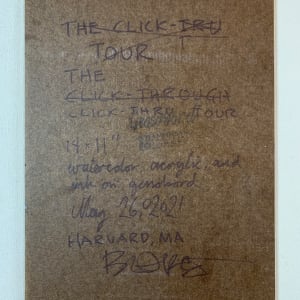 THE CLICK-THRU
TOUR
THE
CLICK-THROUGH
CLICK-THRU TOUR
14 x 11"
watercolor, acrylic, and
ink on
May 26, 2021
HARVARD, MA